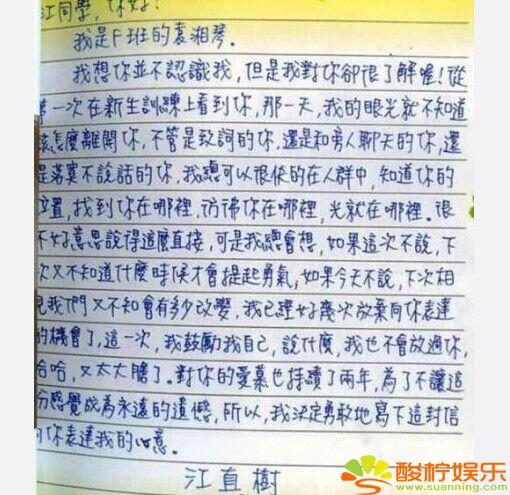 江同學,你好!
我是F班的袁湘琴。
我想你並不認識我,但是我對你卻很了解喔!從
第一次在新生訓練上看到你,那一天,我的眼光就不知道
該怎麼離開你,不管是致詞的你,還是和旁人聊天的你,還
是落寞不說話的你,我總可以很快的在人群中,知道你的
位置,找到你在哪裡,彷彿你在哪裡,光就在哪裡。很
不好意思說得這麼直接,可是我總會想,如果這次不說,下
次又不知道什麼時候才會提起勇氣,如果今天不說,下次相
見我們又不知會有多少改變,我已經好幾次放棄向你表達
的機會了,這一次,我鼓勵我自己,說什麼,我也不會放過你,
哈哈,又太大膽了。對你的愛慕也持續了兩年,為了不讓這
份感覺成為永遠的遺憾,所以,我決定勇敢地寫下這封信
向你表達我的心意。
江直樹
酸柠娱乐
www.suanning.com